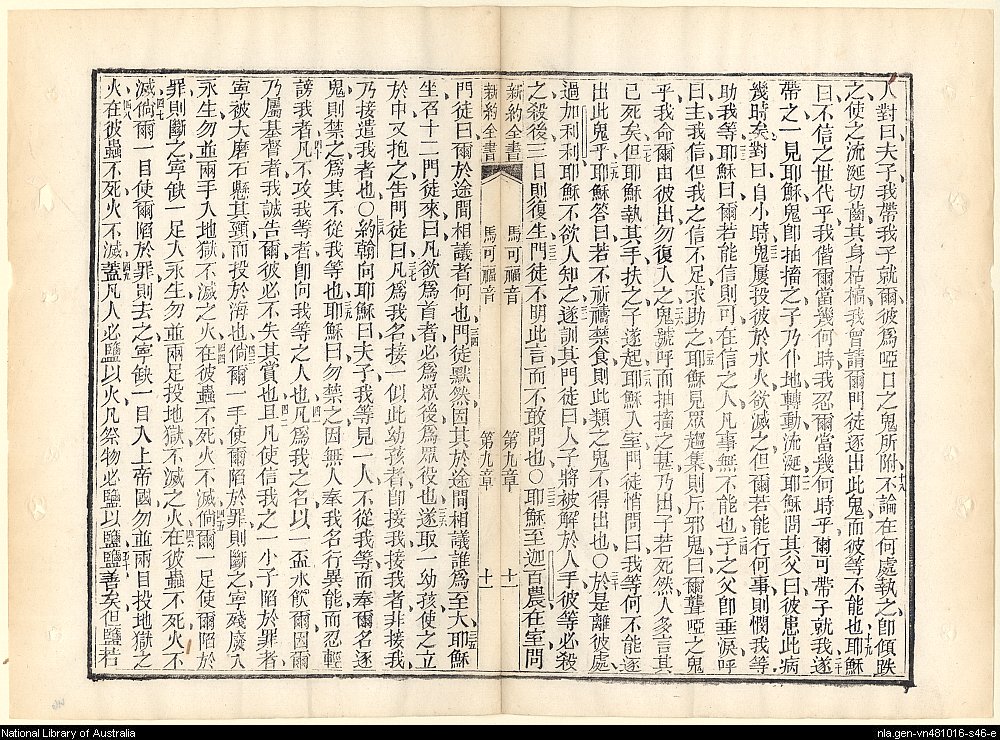 人對曰夫子我帶我子就爾彼爲啞口之鬼所附不論在何處執之卽傾跌
之使之流涎切齒其身枯槁我曾請爾門徒逐出此鬼而彼等不能也耶穌
曰不信之世代乎我偕爾當幾何時我忍爾當幾何時乎爾可帶子就我遂
帶之一見耶穌鬼卽抽搐之子乃仆地轉動流涎耶穌問其父曰彼患此病
幾時矣對曰自小時鬼屢投彼於水火欲滅之但爾若能行何事則憫我等
助我等耶穌曰爾若能信則可在信之人凡事無不能也子之父卽垂淚呼
曰主我信但我之信不足求助之耶穌見眾趨集則斥邪鬼曰爾聾啞之鬼
乎我命爾由彼出勿復入之鬼號呼而抽搐之甚乃出子若死然人多言其
已死矣但耶穌執其手扶之子遂起耶穌入室門徒悄問曰我等何不能逐
出此鬼乎耶穌答曰若不祈禱禁食則此類之鬼不得出也○於是離彼處
過加利利耶穌不欲人知之遂訓其門徒曰人子將被解於人手彼等必殺
之殺後三日則復生門徒不明此言而不敢問也○耶穌至迦百農在室問
新約全書 馬可福音 第九章 十一
新約全書 馬可福音 第九章 十一
門徒曰爾於途間相議者何也門徒默然因其於途間相議誰爲至大耶穌
坐召十二門徒來曰凡欲爲首者必爲眾後爲眾役也遂取一幼孩使之立
於中又抱之告門徒曰凡爲我名接一似此幼孩者卽接我接我者非接我
乃接遣我者也○約翰向耶穌曰夫子我等見一人不從我等而奉爾名逐
鬼則禁之爲其不從我等也耶穌曰勿禁之因無人奉我名行異能而忍輕
謗我者凡不攻我等者卽向我等之人也凡爲我之名以一盃水飲爾因爾
乃屬基督者我誠告爾彼必不失其賞也且凡使信我之一小子陷於罪者
寧被大磨石懸其頸而投於海也倘爾一手使爾陷於罪則斷之寧殘廢入
永生勿並兩手入地獄不滅之火在彼蟲不死火不滅倘爾一足使爾陷於
罪則斷之寧缺一足入永生勿並兩足投地獄不滅之火在彼蟲不死火不
滅倘爾一目使爾陷於罪則去之寧缺一目入上帝國勿並兩目投地獄之
火在彼蟲不死火不滅蓋凡人必鹽以火凡祭物必鹽以鹽鹽善矣但鹽若
National Library of Australia
nla.gen-vn481016-s46-e